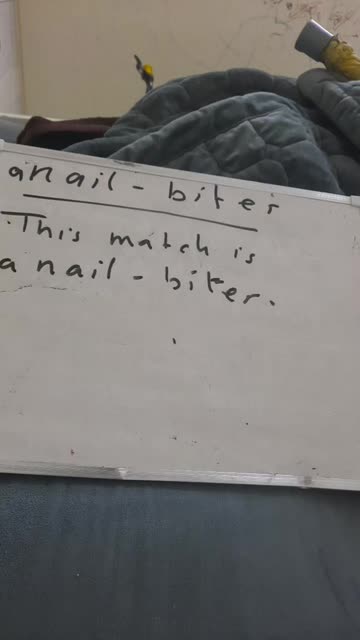 a nail - biter
This match is
a nail - biter.